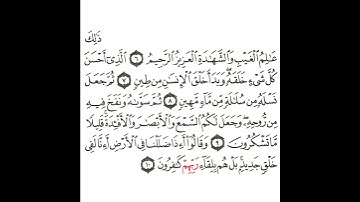 ذَٰلِكَ
عَٰلِمُ ٱلْغَيْبِ وَٱلشَّهَٰدَةِ ٱلْعَزِيزُ ٱلرَّحِيمُ ٦ ٱلَّذِىٓ أَحْسَنَ
كُلَّ شَىْءٍ خَلَقَهُۥ وَبَدَأَ خَلْقَ ٱلْإِنسَٰنِ مِن طِينٍ ٧ ثُمَّ جَعَلَ
نَسْلَهُۥ مِن سُلَٰلَةٍ مِّن مَّآءٍ مَّهِينٍ ٨ ثُمَّ سَوَّىٰهُ وَنَفَخَ فِيهِ
مِن رُّوحِهِۦ وَجَعَلَ لَكُمُ ٱلسَّمْعَ وَٱلْأَبْصَٰرَ وَٱلْأَفْـِٔدَةَ قَلِيلًا
مَّا تَشْكُرُونَ ٩ وَقَالُوٓا۟ أَءِذَا ضَلَلْنَا فِى ٱلْأَرْضِ أَءِنَّا لَفِى
خَلْقٍ جَدِيدٍۭ بَلْ هُم بِلِقَآءِ رَبِّهِمْ كَٰفِرُونَ ١٠